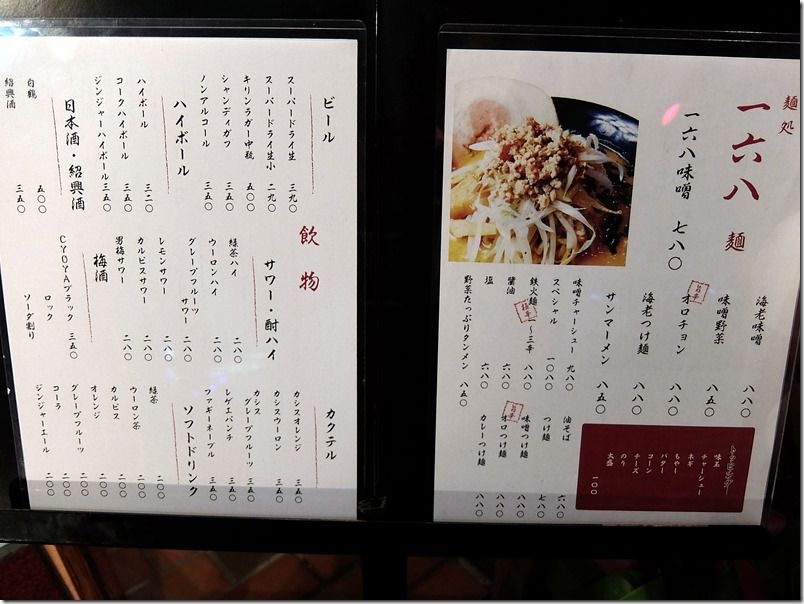 麺処
一六八
麺
一六八味噌 七八〇
海老味噌 八八〇
味噌野菜 八五〇
旨辛
オロチョン 八八〇
海老つけ麺 八八〇
サンマーメン 八五〇
味噌チャーシュー 九八〇
スペシャル 一〇八〇
極辛
鉄火麺 一〜三辛 八八〇
醤油 六八〇
塩 六八〇
野菜たっぷりタンメン 八五〇
油そば 六八〇
つけ麺 七八〇
味噌つけ麺 八八〇
旨辛
オロつけ麺 八八〇
カレーつけ麺 八八〇
トッピング
味玉
チャーシュー
ネギ
もやし
バター
コーン
チーズ
のり
大盛
一〇〇
飲物
ビール
スーパードライ生 三九〇
スーパードライ生小 二九〇
キリンラガー中瓶 五〇〇
シャンディガフ 三五〇
ノンアルコール 三五〇
ハイボール
ハイボール 三二〇
コークハイボール 三五〇
ジンジャーハイボール 三五〇
日本酒・紹興酒
白鶴 五〇〇
紹興酒 三五〇
サワー・酎ハイ
緑茶ハイ 二八〇
ウーロンハイ 二八〇
グレープフルーツサワー 二八〇
レモンサワー 二八〇
カルピスサワー 二八〇
男梅サワー 二八〇
梅酒
CYOYAブラック 三五〇
ロック
ソーダ割り
カクテル
カシスオレンジ 三五〇
カシスウーロン 三五〇
カシスグレープフルーツ 三五〇
レゲエパンチ 三五〇
ファギーネーブル 三五〇
ソフトドリンク
緑茶 二〇〇
ウーロン茶 二〇〇
カルピス 二〇〇
オレンジ 二〇〇
グレープフルーツ 二〇〇
コーラ 二〇〇
ジンジャーエール 二〇〇